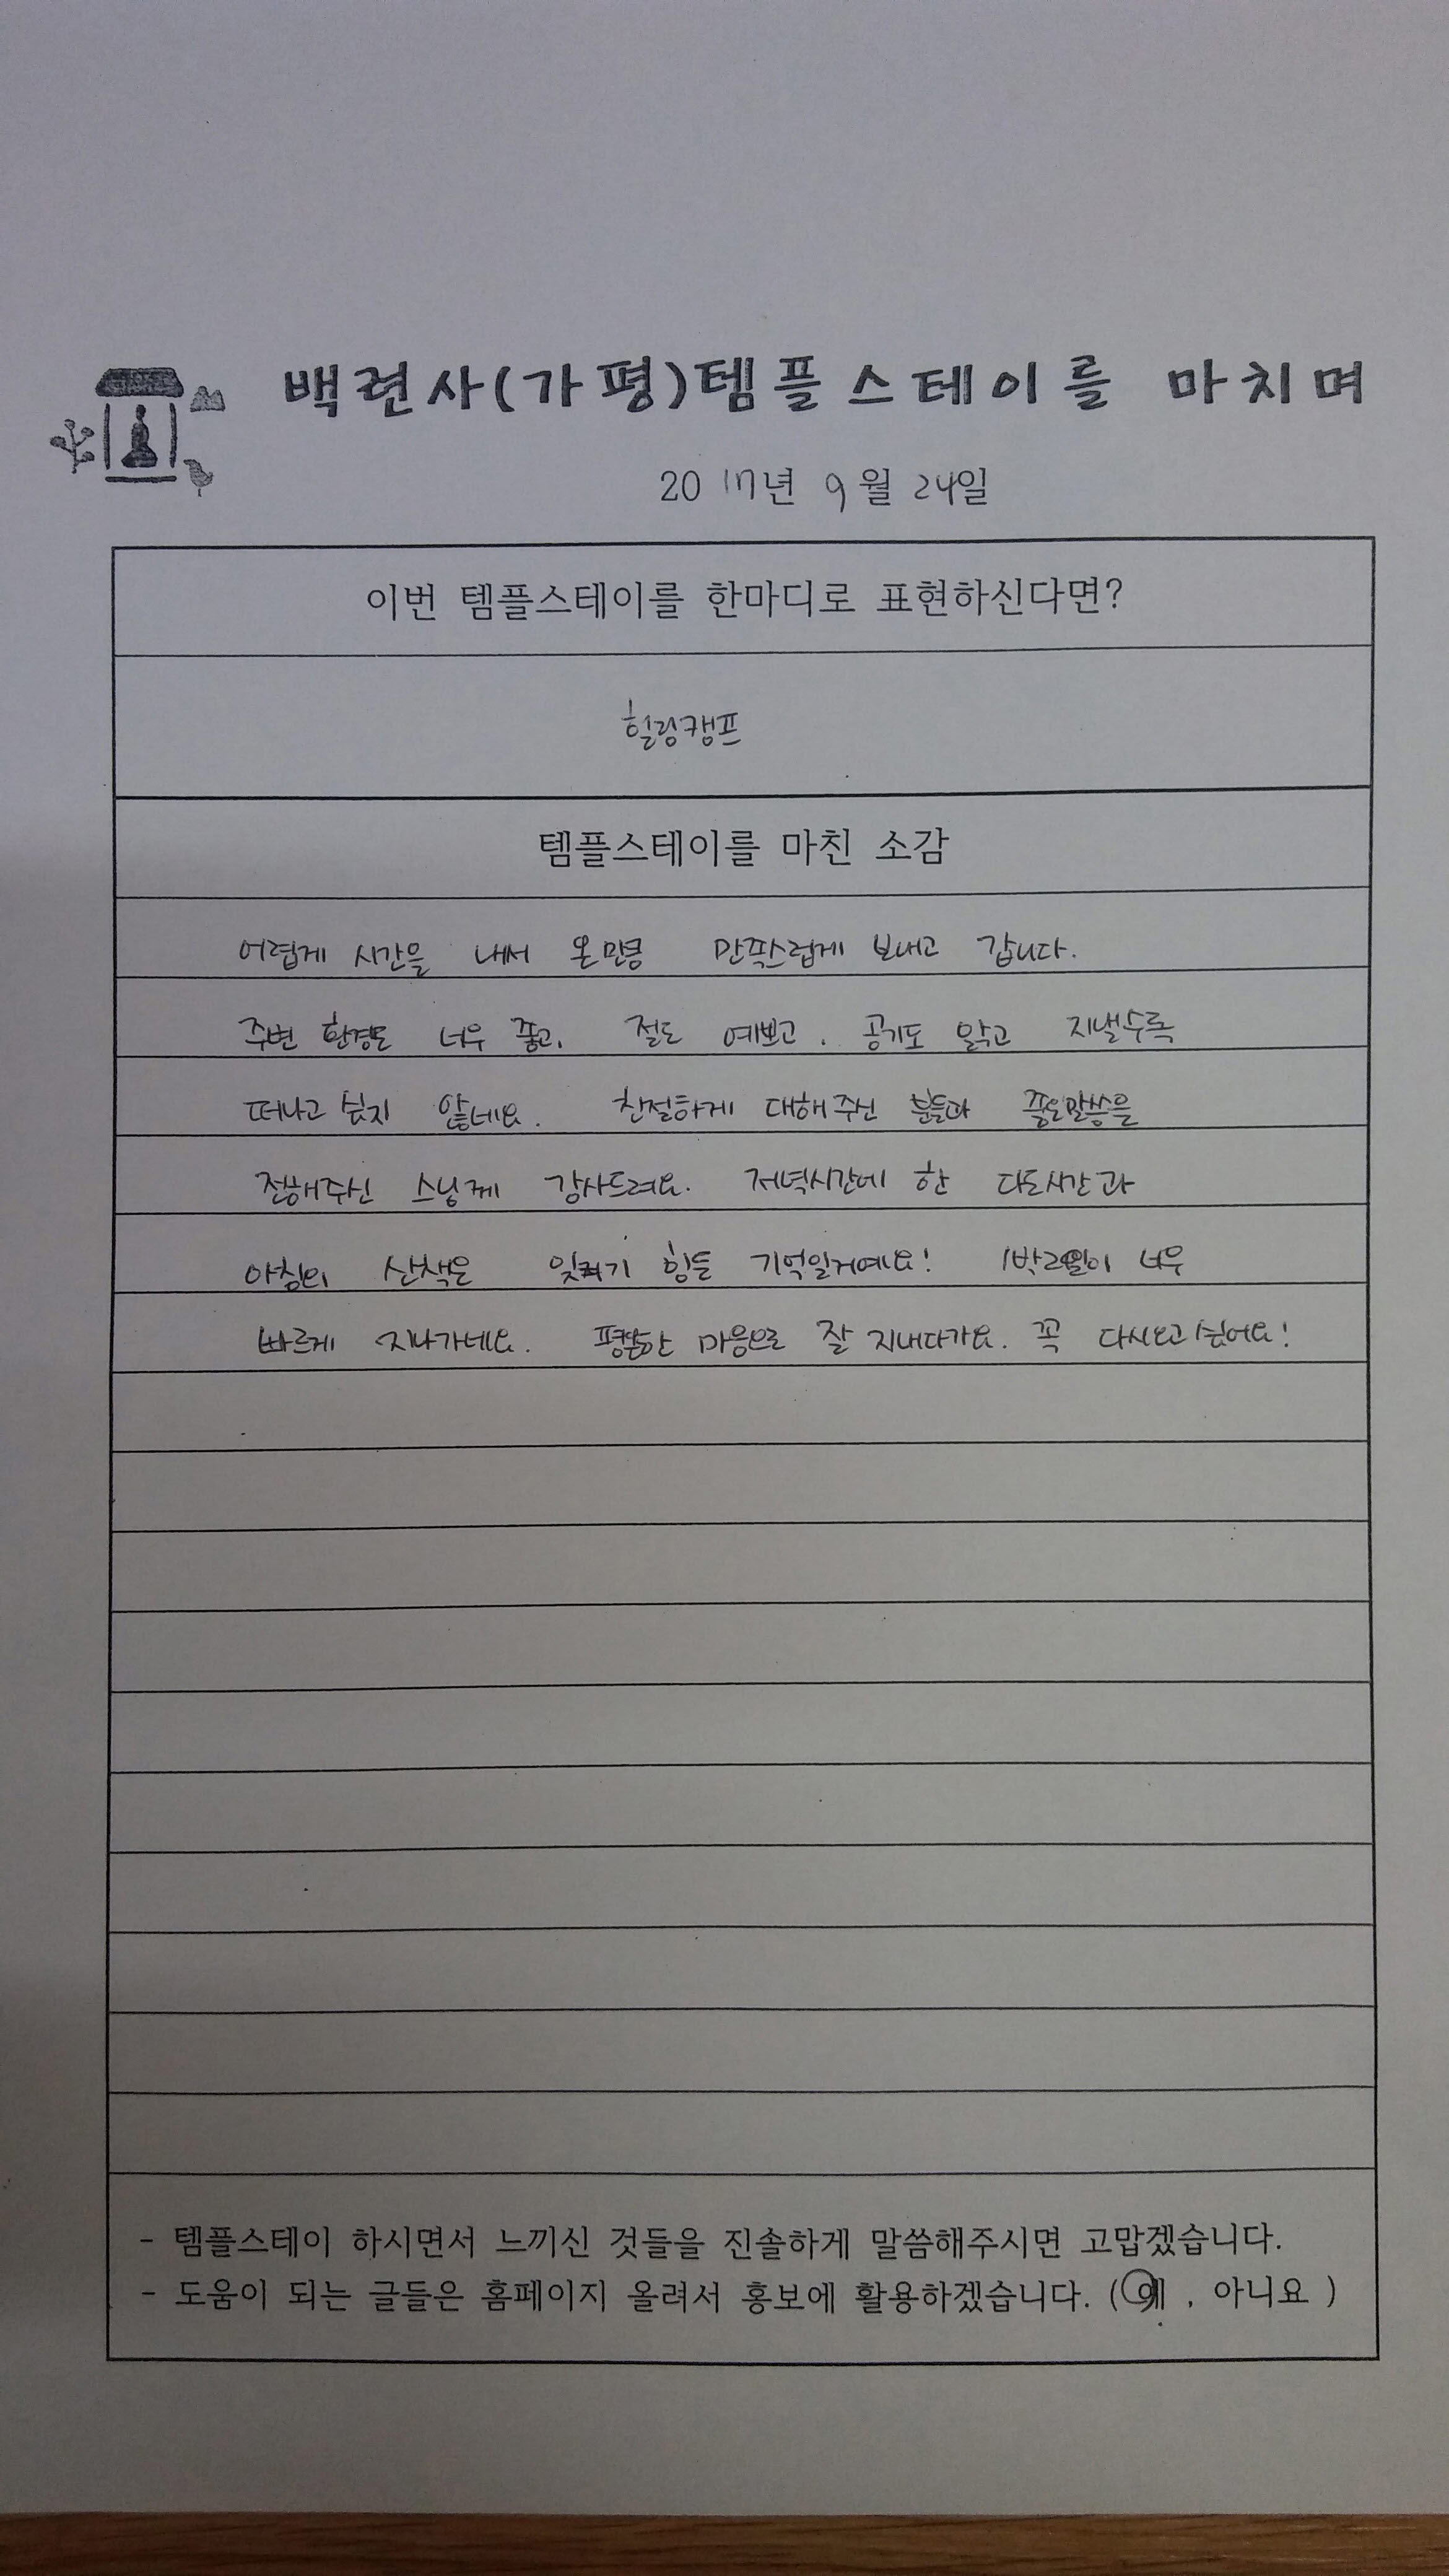 백련사(가평)템플스테이를 마치며
2017년 9월 24일
이번 템플스테이를 한마디로 표현하신다면?
힐링캠프
템플스테이를 마친 소감
어렵게 시간을 내서 온만큼 만족스럽게 보내고 갑니다.
주변 환경도 너무 좋고, 절도 예쁘고, 공기도 맑고 지낼수록
떠나고 싶지 않네요. 친절하게 대해주신 분들과 좋은말씀을
전해주신 스님께 감사드려요. 저녁시간에 한 다도시간과
아침의 산책은 잊혀지기 힘든 기억일거예요! 1박2일이 너무
빠르게 지나가네요. 평온한 마음으로 잘 지내다가요. 꼭 다시오고싶어요!
- 템플스테이 하시면서 느끼신 것들을 진솔하게 말씀해주시면 고맙겠습니다.
- 도움이 되는 글들은 홈페이지 올려서 홍보에 활용하겠습니다. ( 예 , 아니요 )